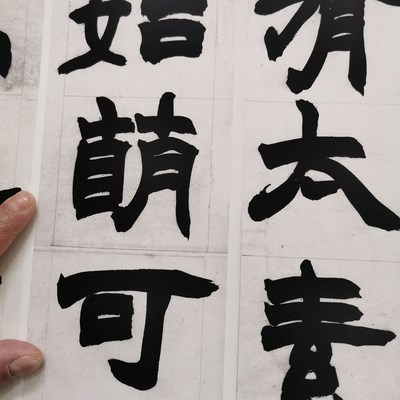 有太素
始萌可